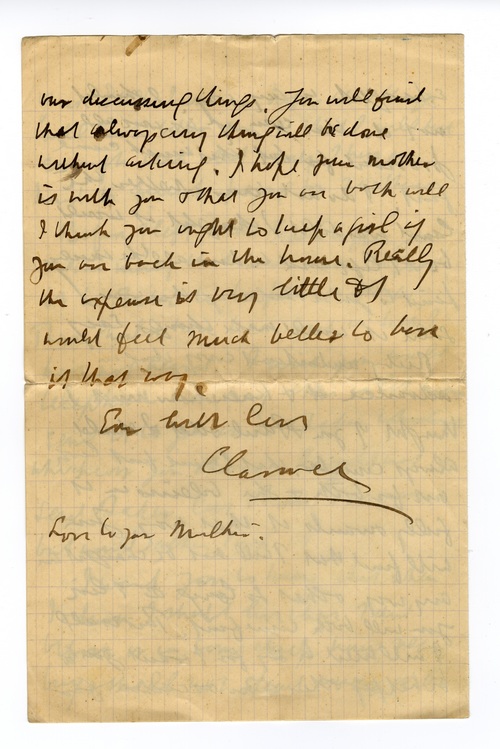 our discussing things. You will find
that always any thing will be done
without asking. I hope your mother
is with you & that you are both well
I think you ought to keep a girl if
you are back in the house. Really
the expense is very little & I
would feel much better to have
it that way.
Ever with love
Love to your Mother.